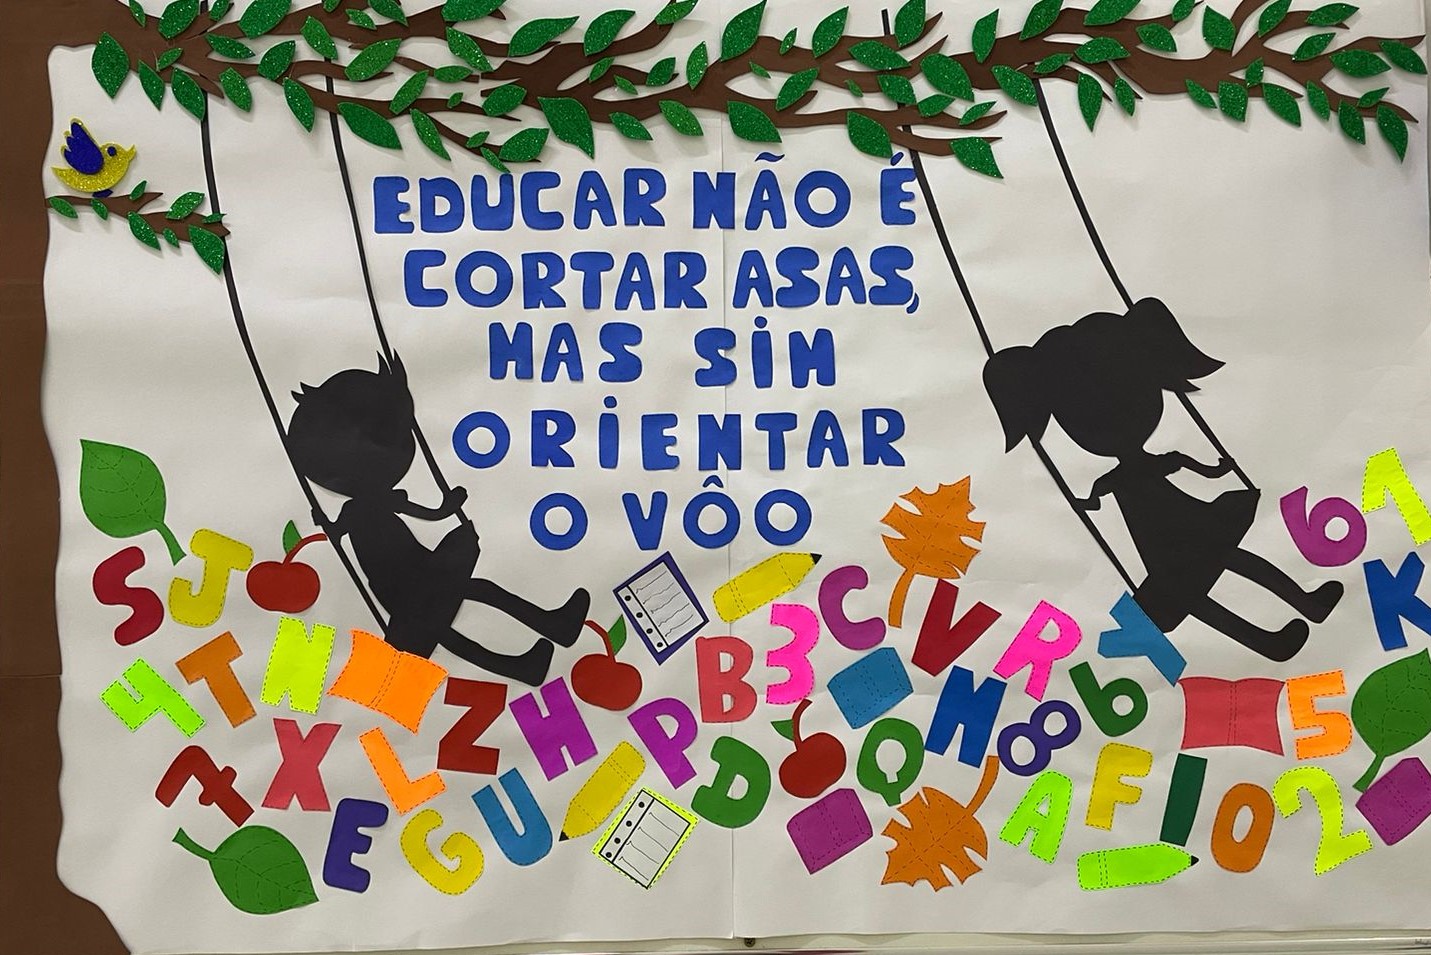 EDUCAR NÃO É
CORTAR ASAS,
MAS SIM
ORIENTAR
O VÔO
6 1
S J C V R Y K
4 T N B 3 6
Z H P M 8 5
7 X L D Q F I O 2
E G U A